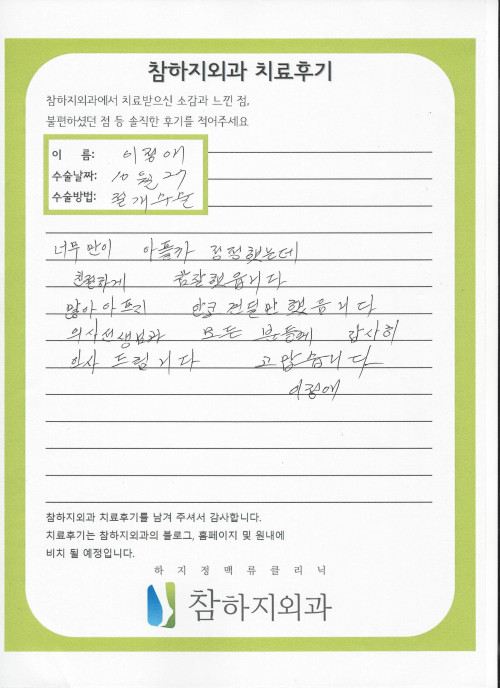 참하지외과 치료후기
참하지외과에서 치료받으신 소감과 느낀 점,
불편하셨던 점 등 솔직한 후기를 적어주세요
이 름: 이정애
수술날짜: 10월 27
수술방법: 절개수술
너무 많이 아플까 걱정했는데
친절하게 잘했읍니다
많아 아프지 안코 견딜만 했읍니다
의사선생님과 모든 분들께 감사히
인사 드립니다 고맙습니다
이정애
참하지외과 치료후기를 남겨 주셔서 감사합니다.
치료후기는 참하지외과의 블로그, 홈페이지 및 원내에
비치 될 예정입니다.
하지정맥류클리닉
참하지외과